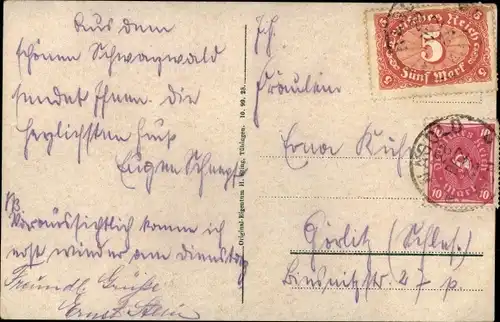 Aus dem
schönen Schwarzwald
sendet Ihnen die
herzlichsten Grüße
Eugen
NB.
Voraussichtlich komme ich
erst wieder am Dienstag
Freundl. Grüße
Ernst
Original-Eigentum H. Tübingen. 10. 99. 28.
Fräulein
Erna
Görlitz (Schles.)
Biesnitzerstr. 47 p
Deutsches Reich
5
Fünf Mark
10
Mark
10